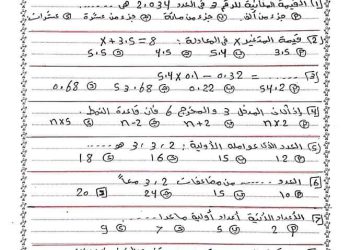 (1) القيمة المكانية للرقم 3 في العدد 2.034 هـ ......
Ⓟ جزء من ألف Ⓤ جزء من مائة Ⓔ جزء من عشرة Ⓢ عشرات
(2) قيمة المتغير x في المعادلة : x + 3.5 = 8
Ⓟ 3.5 Ⓤ 5.4 Ⓔ 4.5 Ⓢ 5.5
(3) ...... = 0.32 - 0.1 × 5.4
Ⓟ 54.2 Ⓤ 0.22 Ⓔ 53.68 Ⓢ 0.68
(4) إذا كان المدخل 3 والمخرج 6 فإن قاعدة النمط
Ⓟ n×2 Ⓤ n+2 Ⓔ n-2 Ⓢ n×5
(5) العدد الذي عوامله الأولية : 2 ، 3 ، 3 هـ ......
Ⓟ 12 Ⓤ 15 Ⓔ 16 Ⓢ 18
(6) العدد ...... من مضاعفات 2 ، 3 معاً
Ⓟ 10 Ⓤ 15 Ⓔ 24 Ⓢ 20
(7) الأعداد الآتية أعداد أولية ماعدا ......
Ⓟ 2 Ⓤ 5 Ⓔ 7 Ⓢ 9